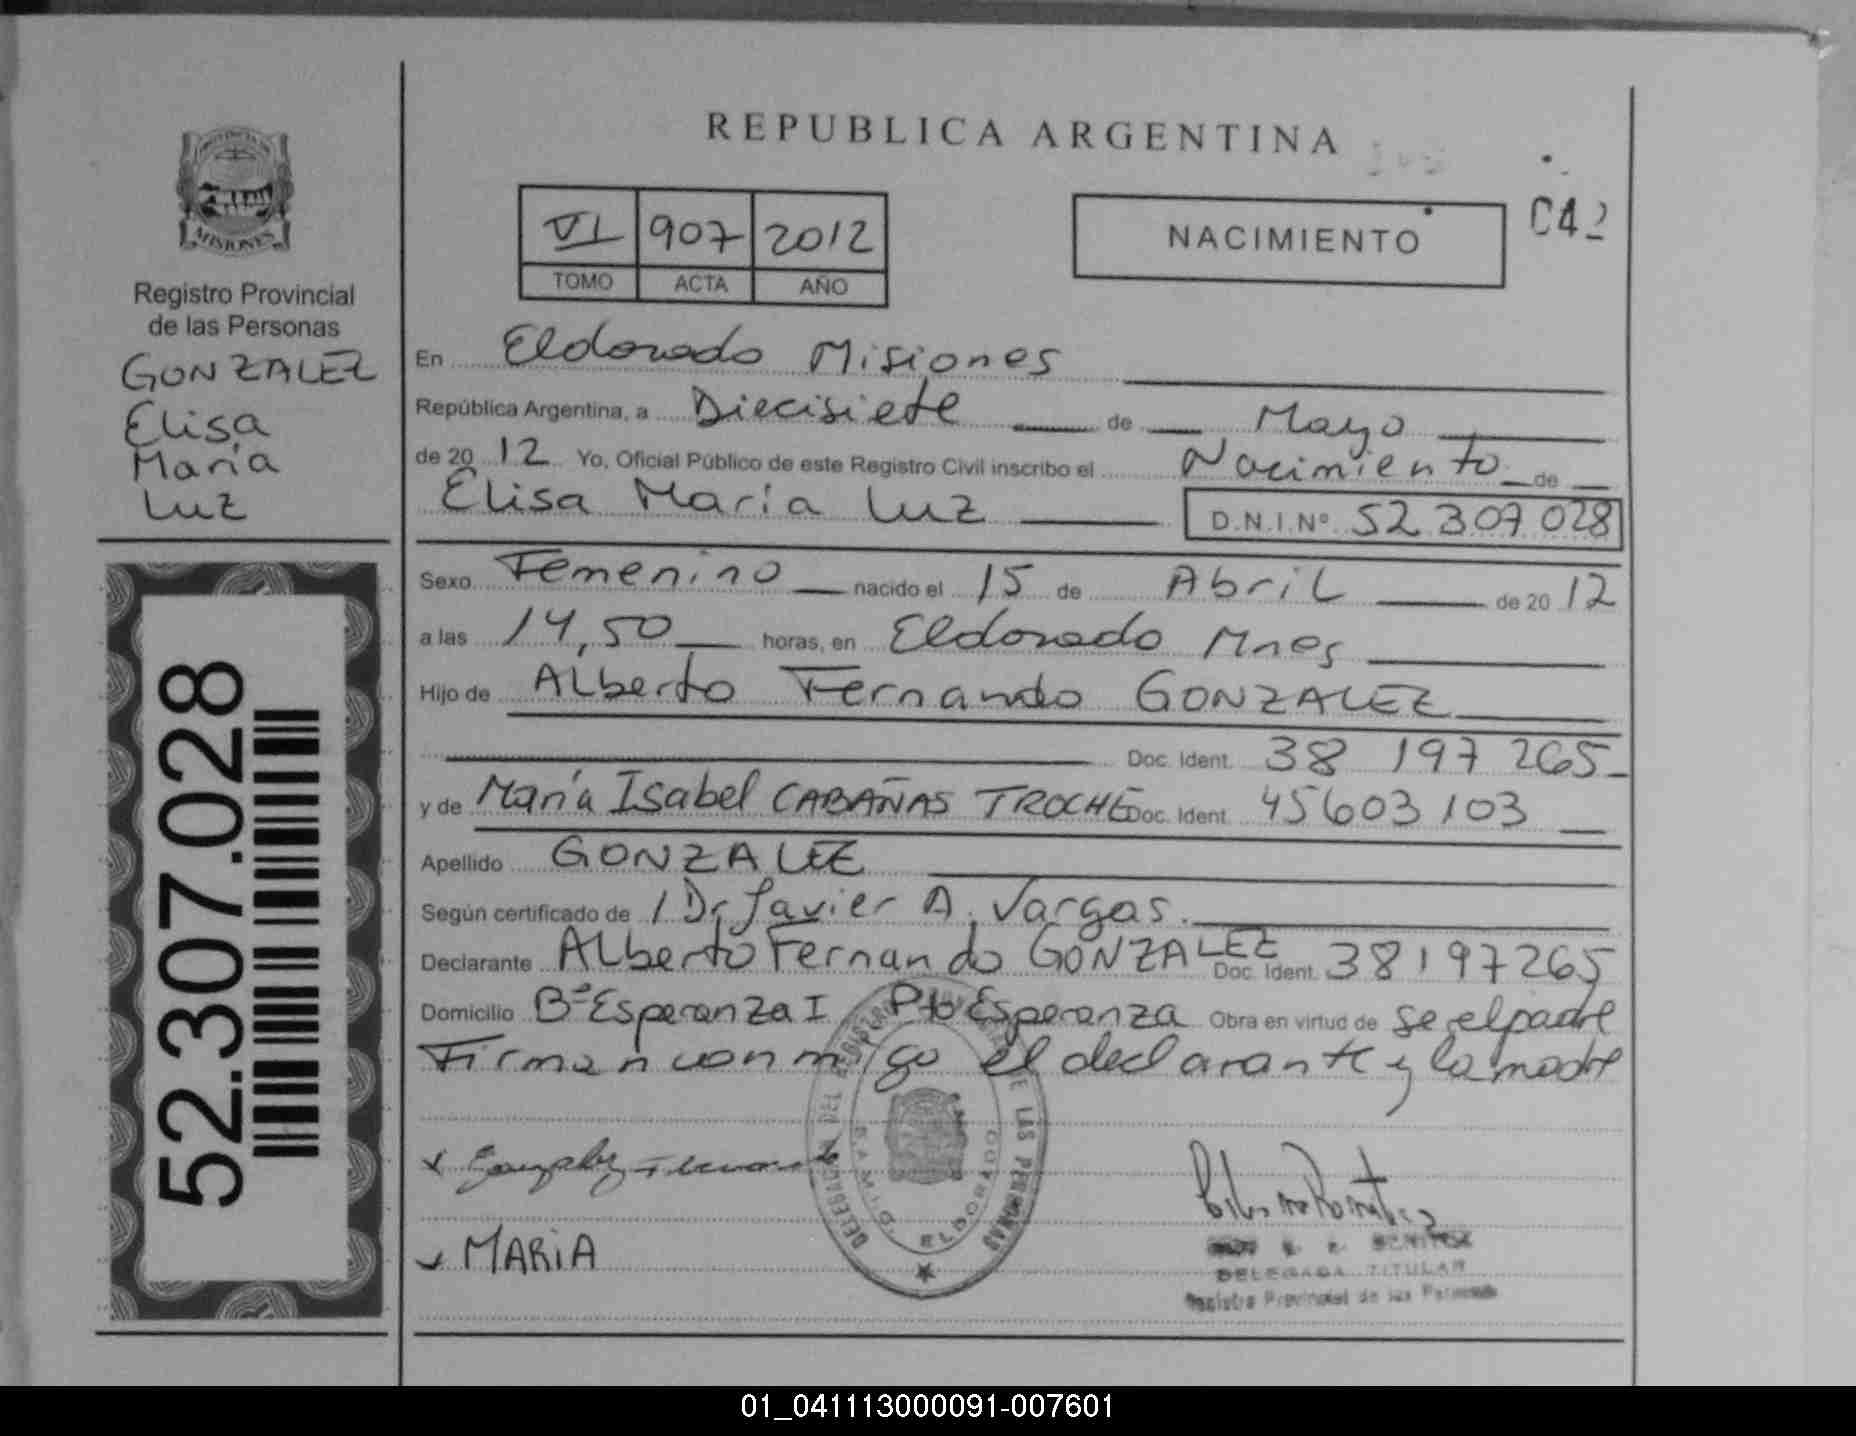 REPUBLICA ARGENTINA
PROVINCIA
MISIONES
Registro Provincial
de las Personas
GONZALEZ
Elisa
María
Luz
52.307.028
VI 907 2012
TOMO ACTA AÑO
NACIMIENTO
C42
En Eldorado Misiones
República Argentina, a Diecisiete de Mayo
de 2012 Yo, Oficial Público de este Registro Civil inscribo el Nacimiento de
Elisa María Luz D.N.I.Nº 52 307 028
Sexo Femenino nacido el 15 de Abril de 2012
a las 14,50 horas, en Eldorado Mnes
Hijo de Alberto Fernando GONZALEZ
Doc. Ident. 38 197 265
y de María Isabel CABAÑAS TROCHE Doc. Ident. 45603103
Apellido GONZALEZ
Según certificado de / Dr Javier A. Vargas.
Declarante Alberto Fernando GONZALEZ Doc. Ident. 38197265
Domicilio Bº Esperanza I Pto Esperanza Obra en virtud de se el padre
Firman conmigo el declarante y la madre
DELEGADA TITULAR
Registro Provincial de las Personas
MARIA
ELDORADO
01_041113000091-007601